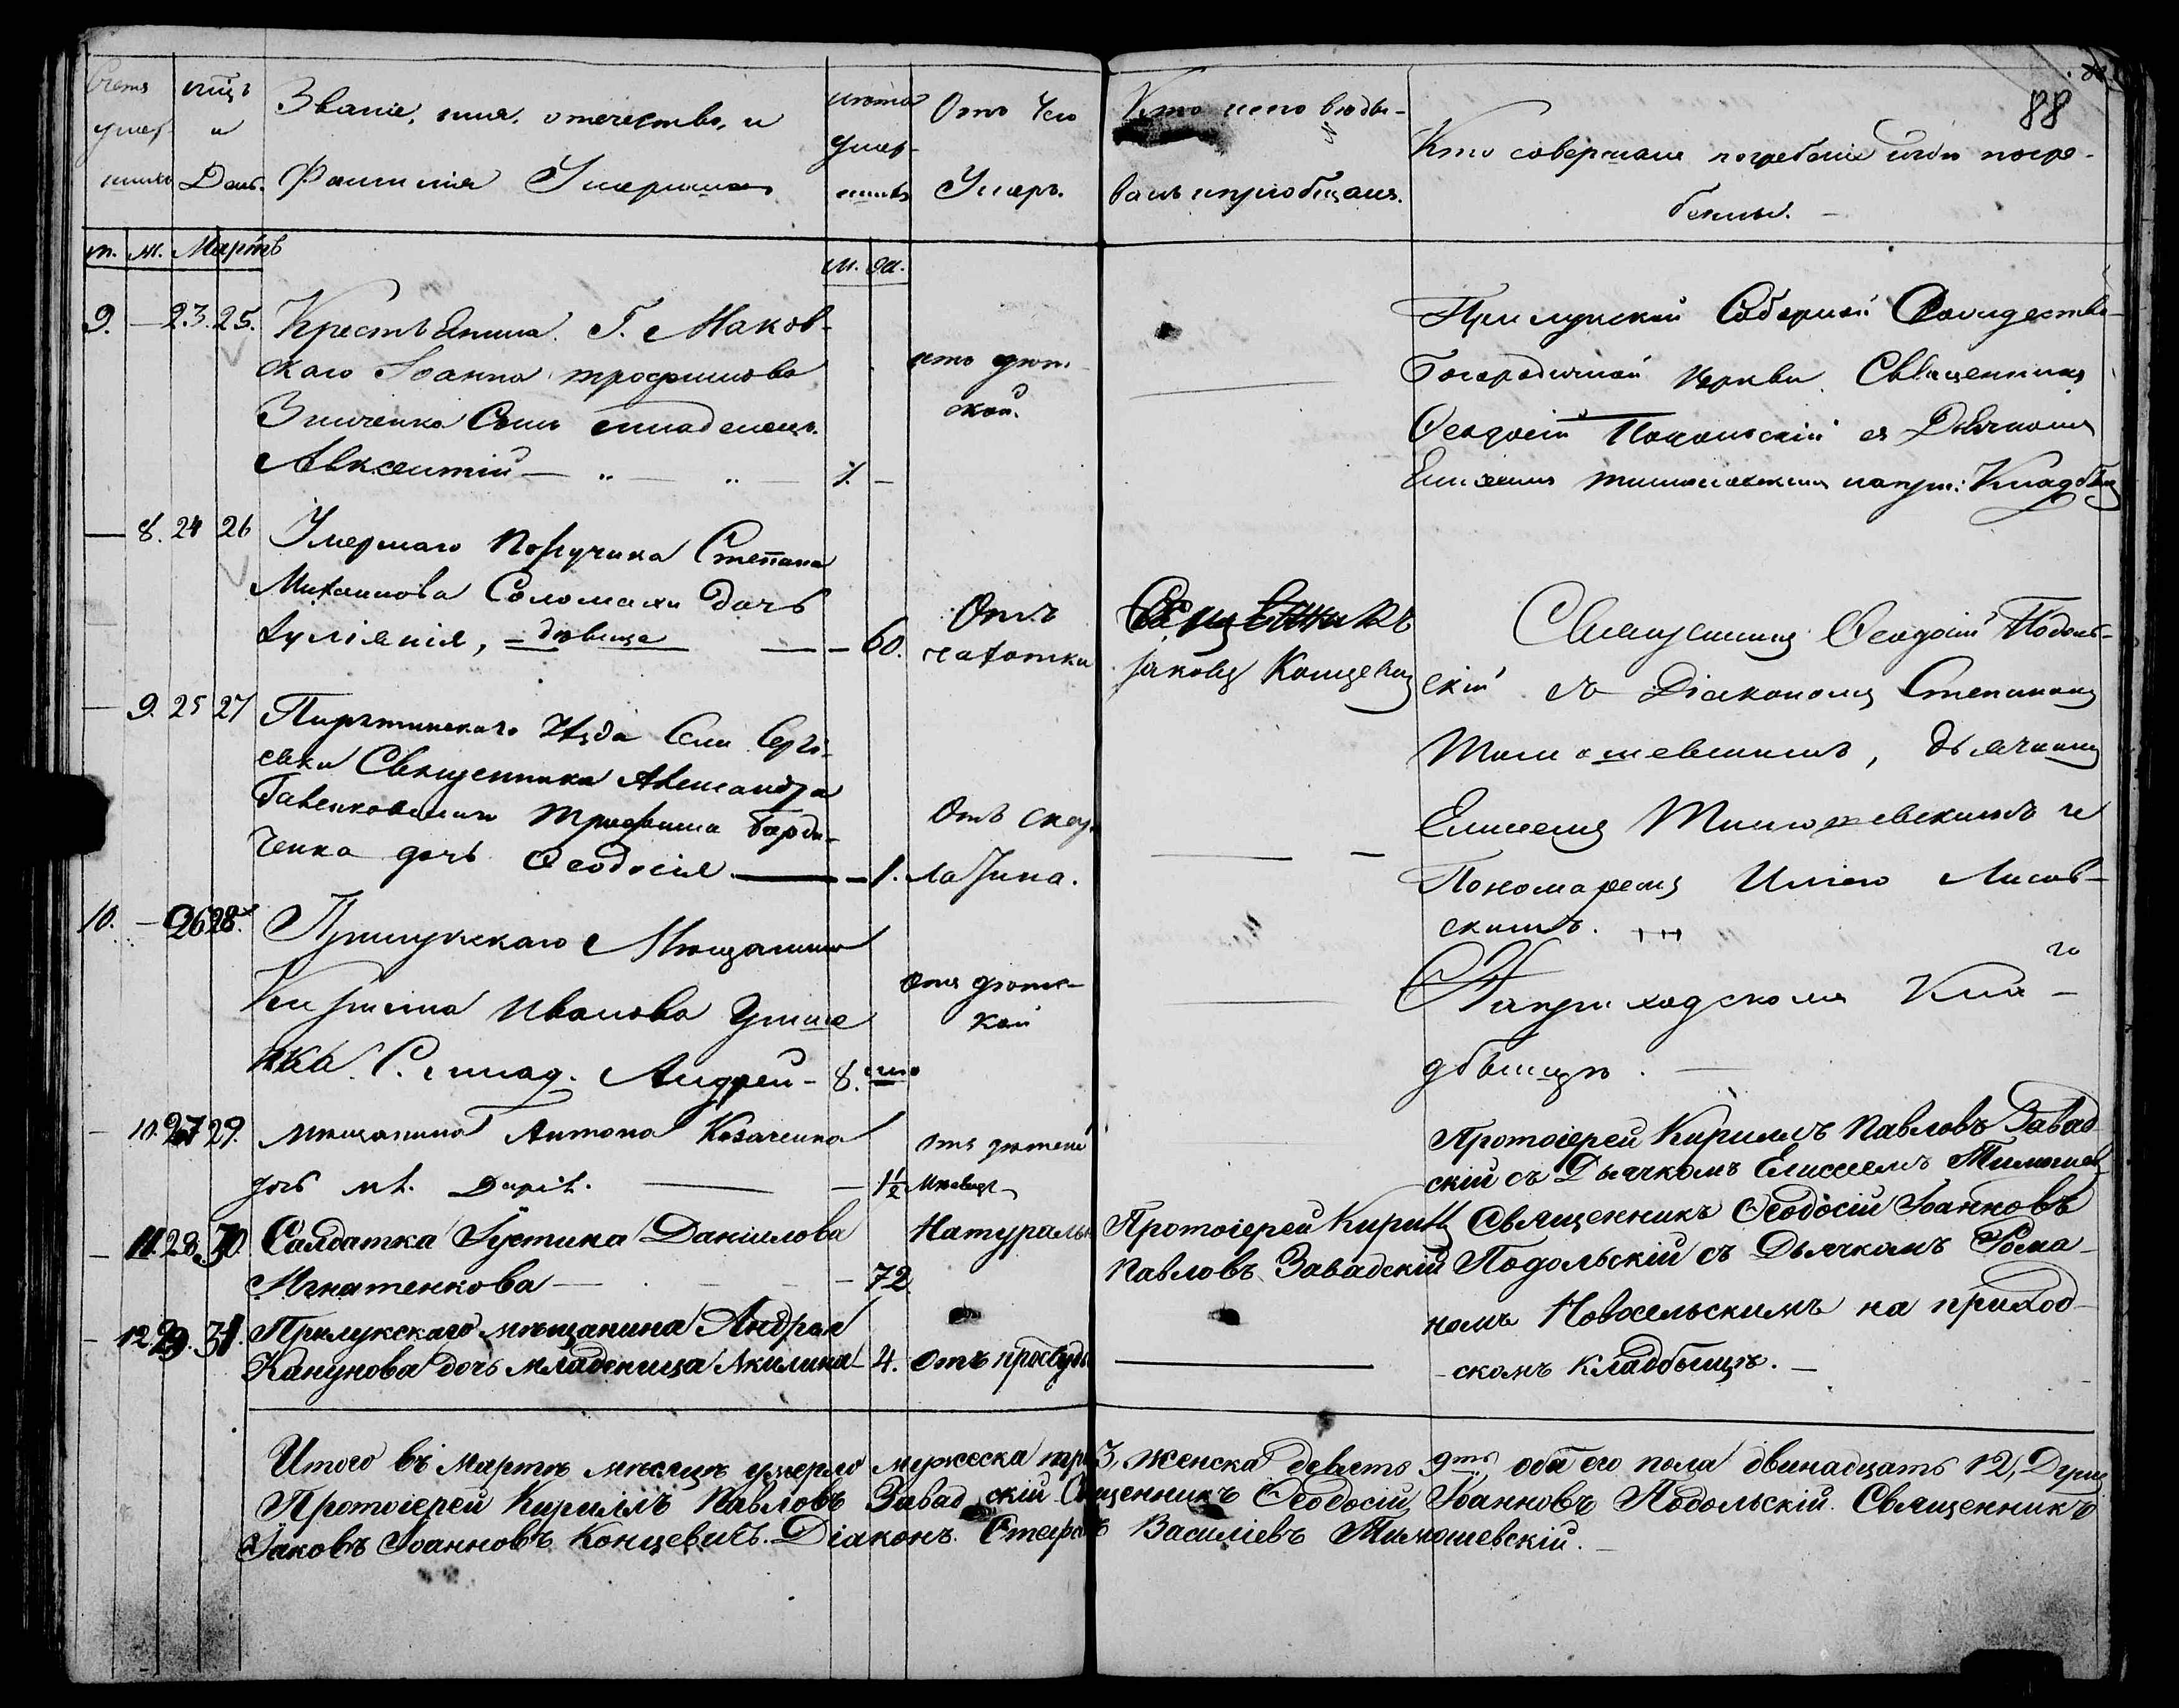 88
Счетъ умер-
шихъ
мѣсцъ
и
День.
Званіе, имя, отечество, и
Фамилія Умершихъ
лѣта
умер-
шихъ
Отъ Чего
Умеръ.
Кто исповѣды-
валъ и пріобщалъ.
Кто совершалъ погребеніе и гдѣ погре-
бены.
м. ж. Мартъ
м. жс.
9. — 23. 25. Крестьянина Г. Маков-
скаго Іоанна Трофимова
Зинченка Сынъ младенецъ
Авксентій — 1. —
Прилукской Соборной Рождество-
Богородичной Церкви Священникъ
Ѳеодосій Подольскій съ Дьячкомъ
Елисеемъ Тимошевскимъ на прих: Кладбищ
— 8. 24 26 Умершаго Поручика Степана
Михаилова Соломахи дочь
Іуліанія, — дѣвица — 60.
Отъ
чахотки
Священникъ
Іаковъ Концевич
Священникъ Ѳеодосій Подоль-
скій съ Діакономъ Стефаномъ
Тимошевскимъ, дьячкомъ
Елисеемъ Тимошевскимъ и
Пономаремъ Лисов-
скимъ.
На приходскомъ Кла-
дбыщѣ.
— 9. 25 27 Пирятинскаго уѣзда Села Сергі-
евки Священника Александра
Трофима
ченка дочь Ѳеодосія — 1.
Отъ скар-
латина.
10. — 26 28. Прилукскаго Мѣщанина
Кирилла Иванова
нка С. млад. Андрей — 8.
— 10. 27 29. Мѣщанина Антона Козаченка
дочь мл. Дарія. — 1½
— 11. 28. 30. Салдатка Іустина Даніилова
Игнатенкова — 72
Натуральн
Протоіерей Кирилъ
Павловъ Завадскій
Протоіерей Кириллъ Павловъ Завад-
скій съ Дьячкомъ Елисеемъ Тимошев
Священникъ Ѳеодосій Іоанновъ
Подольскій съ Дьячкомъ Рома-
номъ Новосельскимъ на приход-
-скомъ кладбыщѣ. —
— 12. 29. 31. Прилукскаго мѣщанина Андрея
Канунова дочь младеница Акилина — 4. Отъ простуды
Итого въ мартѣ мѣсяцѣ умерло мужеска три 3, женска девять 9ть, обоего пола двинадцать 12, Душъ
Протоіерей Кириллъ Павловъ Завадскій Священникъ Ѳеодосій Іоанновъ Подольскій. Священникъ
Іаковъ Іоанновъ Концевичъ. Діаконъ Стефанъ Василіевъ Тимошевскій.